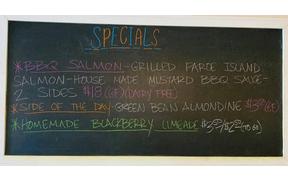 SPECIALS
*BBQ SALMON-GRILLED FAROE ISLAND
SALMON-HOUSE MADE MUSTARD BBQ SAUCE-
2 SIDES $18 (GF)(DAIRY FREE)
*SIDE OF THE DAY-GREEN BEAN ALMONDINE $3⁵⁰(GF)
*HOMEMADE BLACKBERRY LIMEADE $3⁵⁰/$2⁵⁰(TO GO)